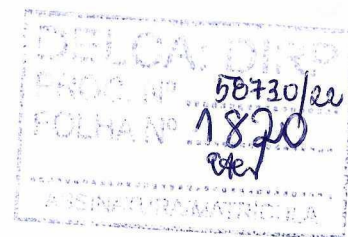 DELCA: DIRP
PROC. Nº 58730/22
FOLHA Nº 1820
ASSINATURA/MATRÍCULA